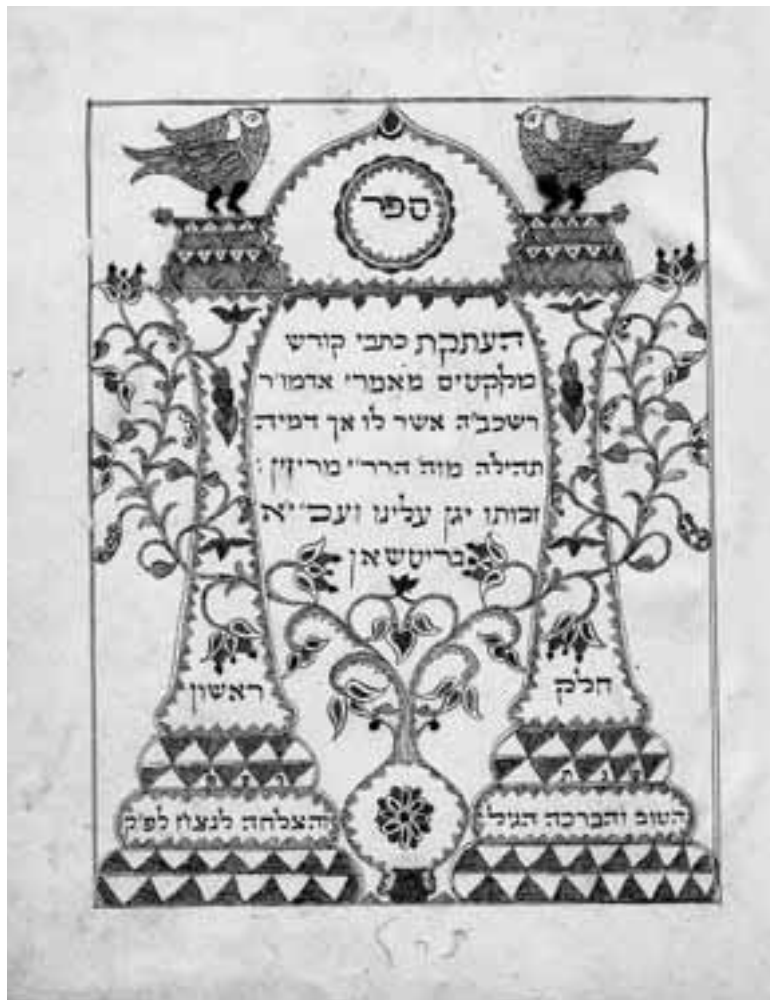 ספר
העתקת כתבי קודש
מלקטים מאמרי אדמו״ר
רשכב״ה אשר לו אך דמיה
תהילה מוה׳ הרר״י מריזין
זכותו יגן עלינו ועכ״יא
בריטשאן
חלק ראשון
הטוב והברכה הגיל
והצלחה לנצח לפ״ק